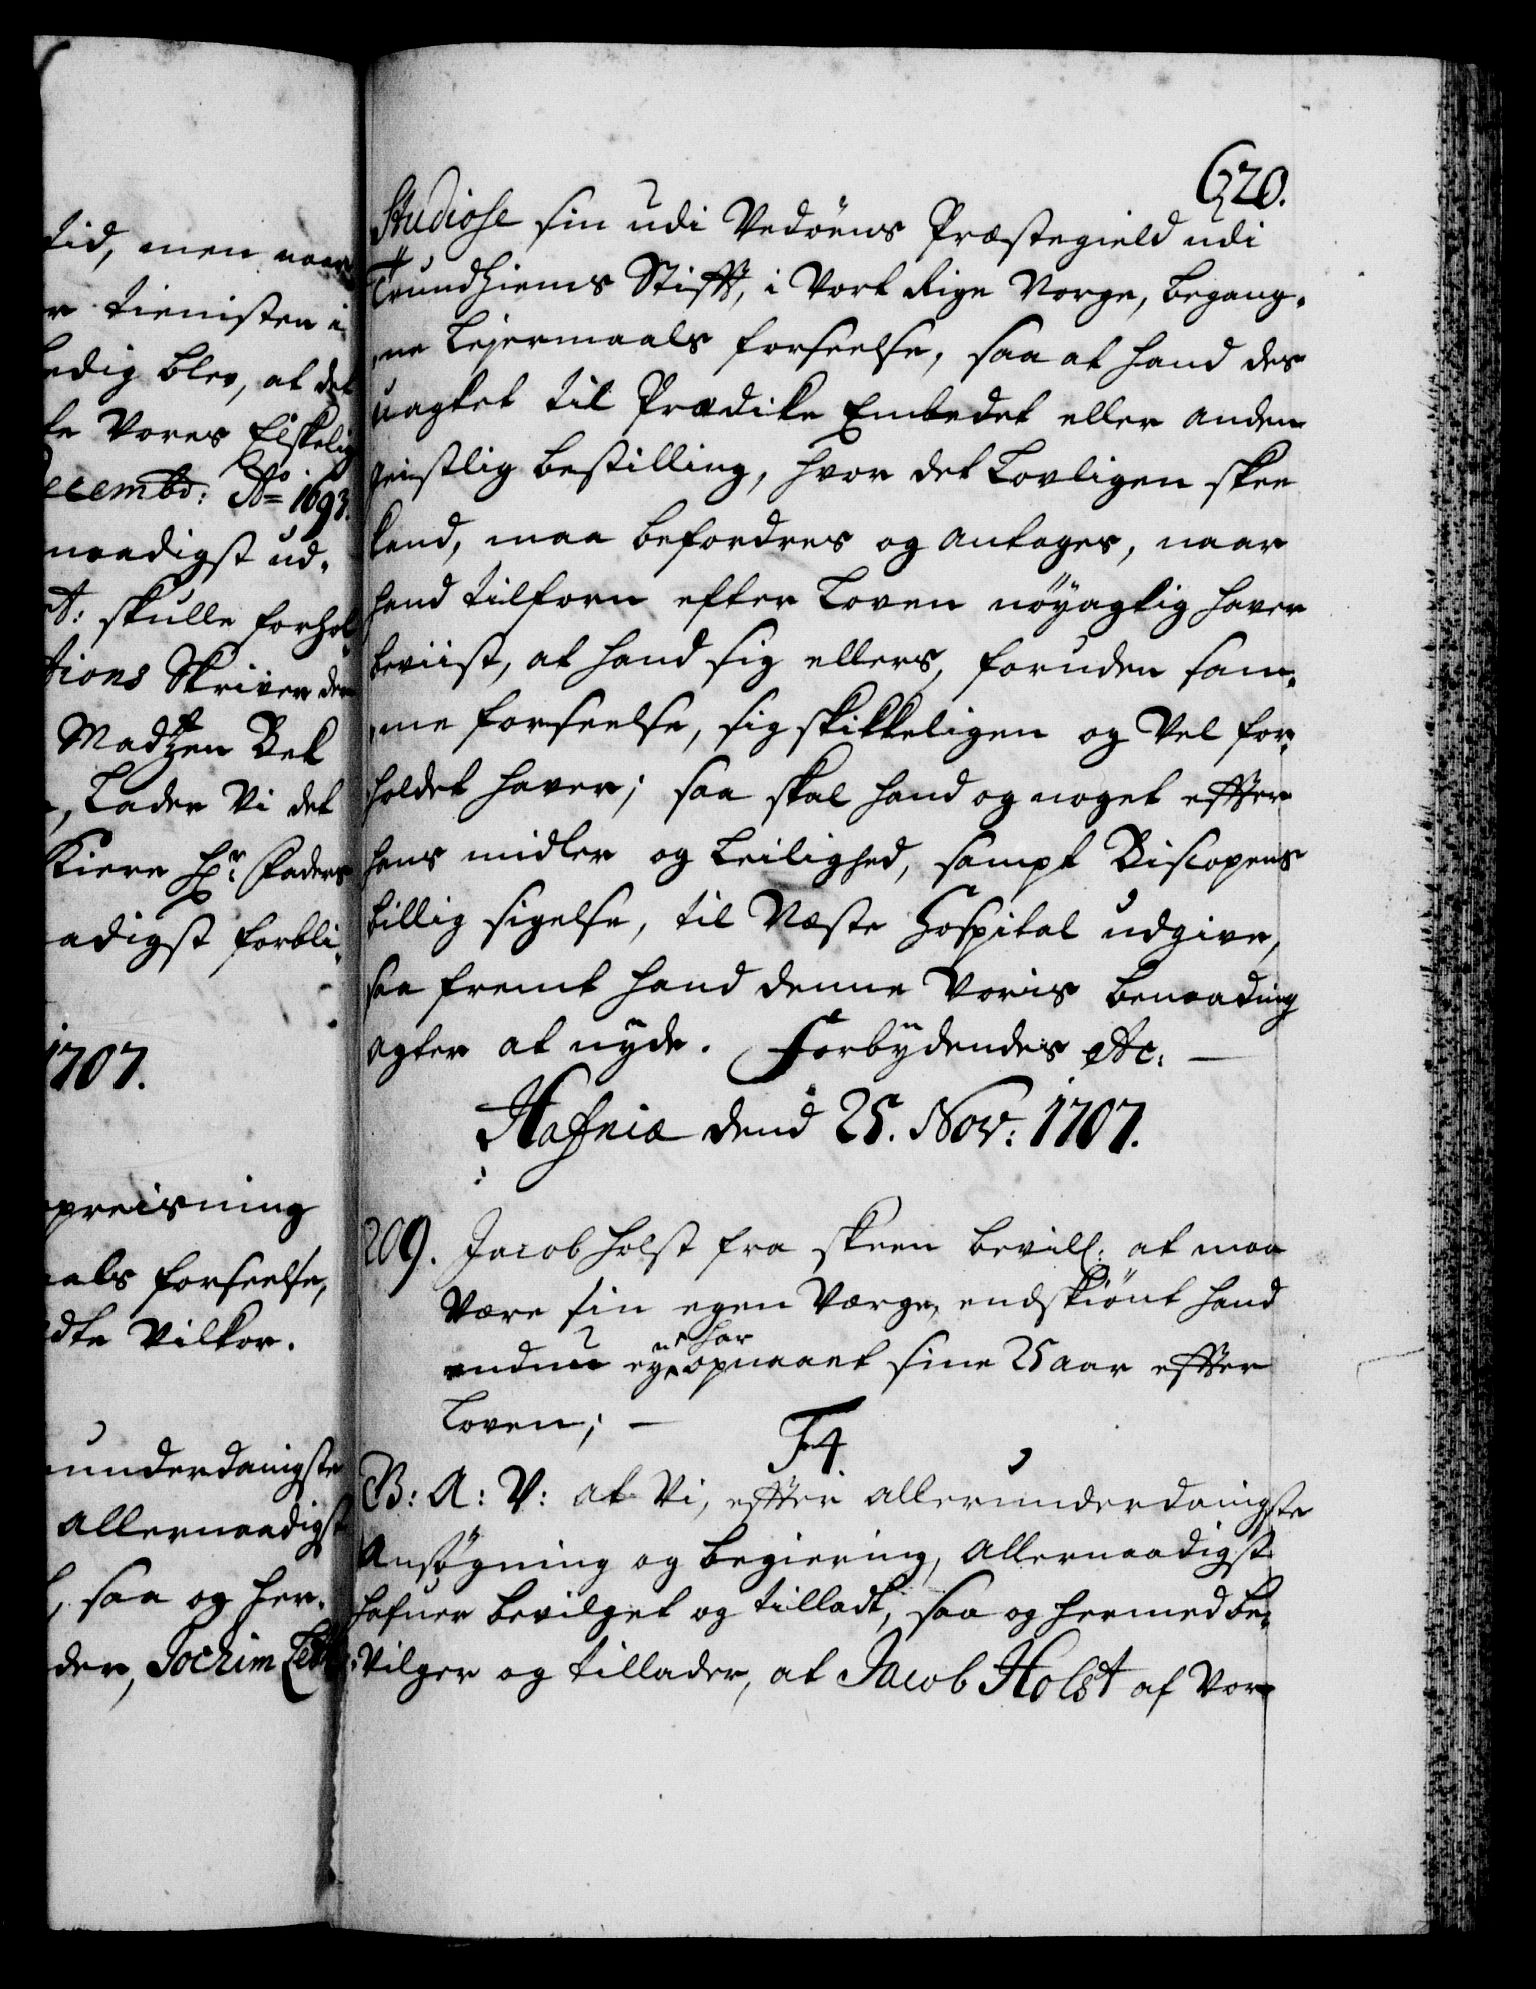 tid, men naar
r tienisten i
edig blev, at det
ke Vores Elskelig
ecembr: Aº 1693.
naadigst ud-
t: skulle forhol
tions Skriver der
Madtzen Bek
, Lader Vi det
Kiere Hr: Faders
adigst forbli-
1707.
preisning
aals forseelse,
dte Vilkor.
underdanigste
allernaadigst
, saa og her-
der, Jochim
620.
Studiose sin udi Vedøens Præstegield udi
Trundhiems Stifft, i Vort Rige Norge, begang-
ne Lejermaals forseelse, saa at hand des
uagtet til Prædike Embedet eller anden
geistlig bestilling, hvor det Lovligen skee
kand, maa befordres og antages, naar
hand tilforn efter Loven nöyagtig haver
beviist, at hand sig ellers, foruden sam-
me forseelse, sig skikkeligen og Vel for-
holdet haver; saa skal hand og noget effter
hans midler og Leilighed, sampt Biscopens
billig sigelse, til Næste Hospital udgive,
saa fremt hand denne Voris benaading
agter at nyde. Forbydendes etc: —
Hafniæ dend 25. Nov: 1707.
209. Jacob Holst fra Skeen bevill: at maa
Være sin egen Værge, endskiönt hand
endnu ey har opnaaet sine 25 aar effter
Loven; —
F4.
B: A: V: at Vi, effter allerunderdanigste
Ansøgning og begiering, Allernaadigst
hafuer bevilget og tilladt, saa og hermed be-
vilger og tillader, at Jacob Holst af Vor